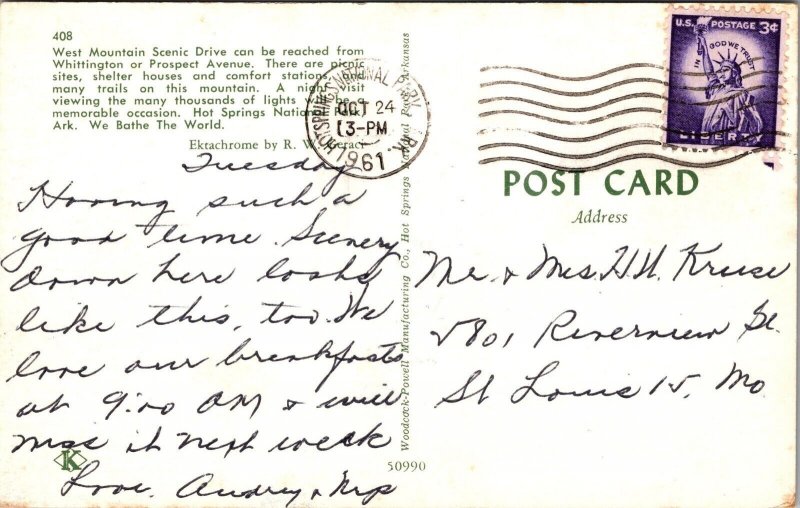 408
West Mountain Scenic Drive can be reached from
Whittington or Prospect Avenue. There are picnic
sites, shelter houses and comfort stations and
many trails on this mountain. A night visit
viewing the many thousands of lights is
memorable occasion. Hot Springs National Park,
Ark. We Bathe The World.
Ektachrome by R. W.
Tuesday
Having such a
good time. Scenery
down here looks
like this, too. We
love our breakfasts
at 9:00 AM & will
miss it next week
Love, Audrey &
K
Woodcock-Powell Manufacturing Co., Hot Springs National Park, Arkansas
50990
HOT SPRINGS NATIONAL PARK
OCT 24
3-PM
1961
ARK.
U.S. POSTAGE 3¢
IN GOD WE TRUST
LIBERTY
POST CARD
Address
Mr. & Mrs. H.H. Kruse
5801 Riverview Bl.
St Louis 15, Mo.